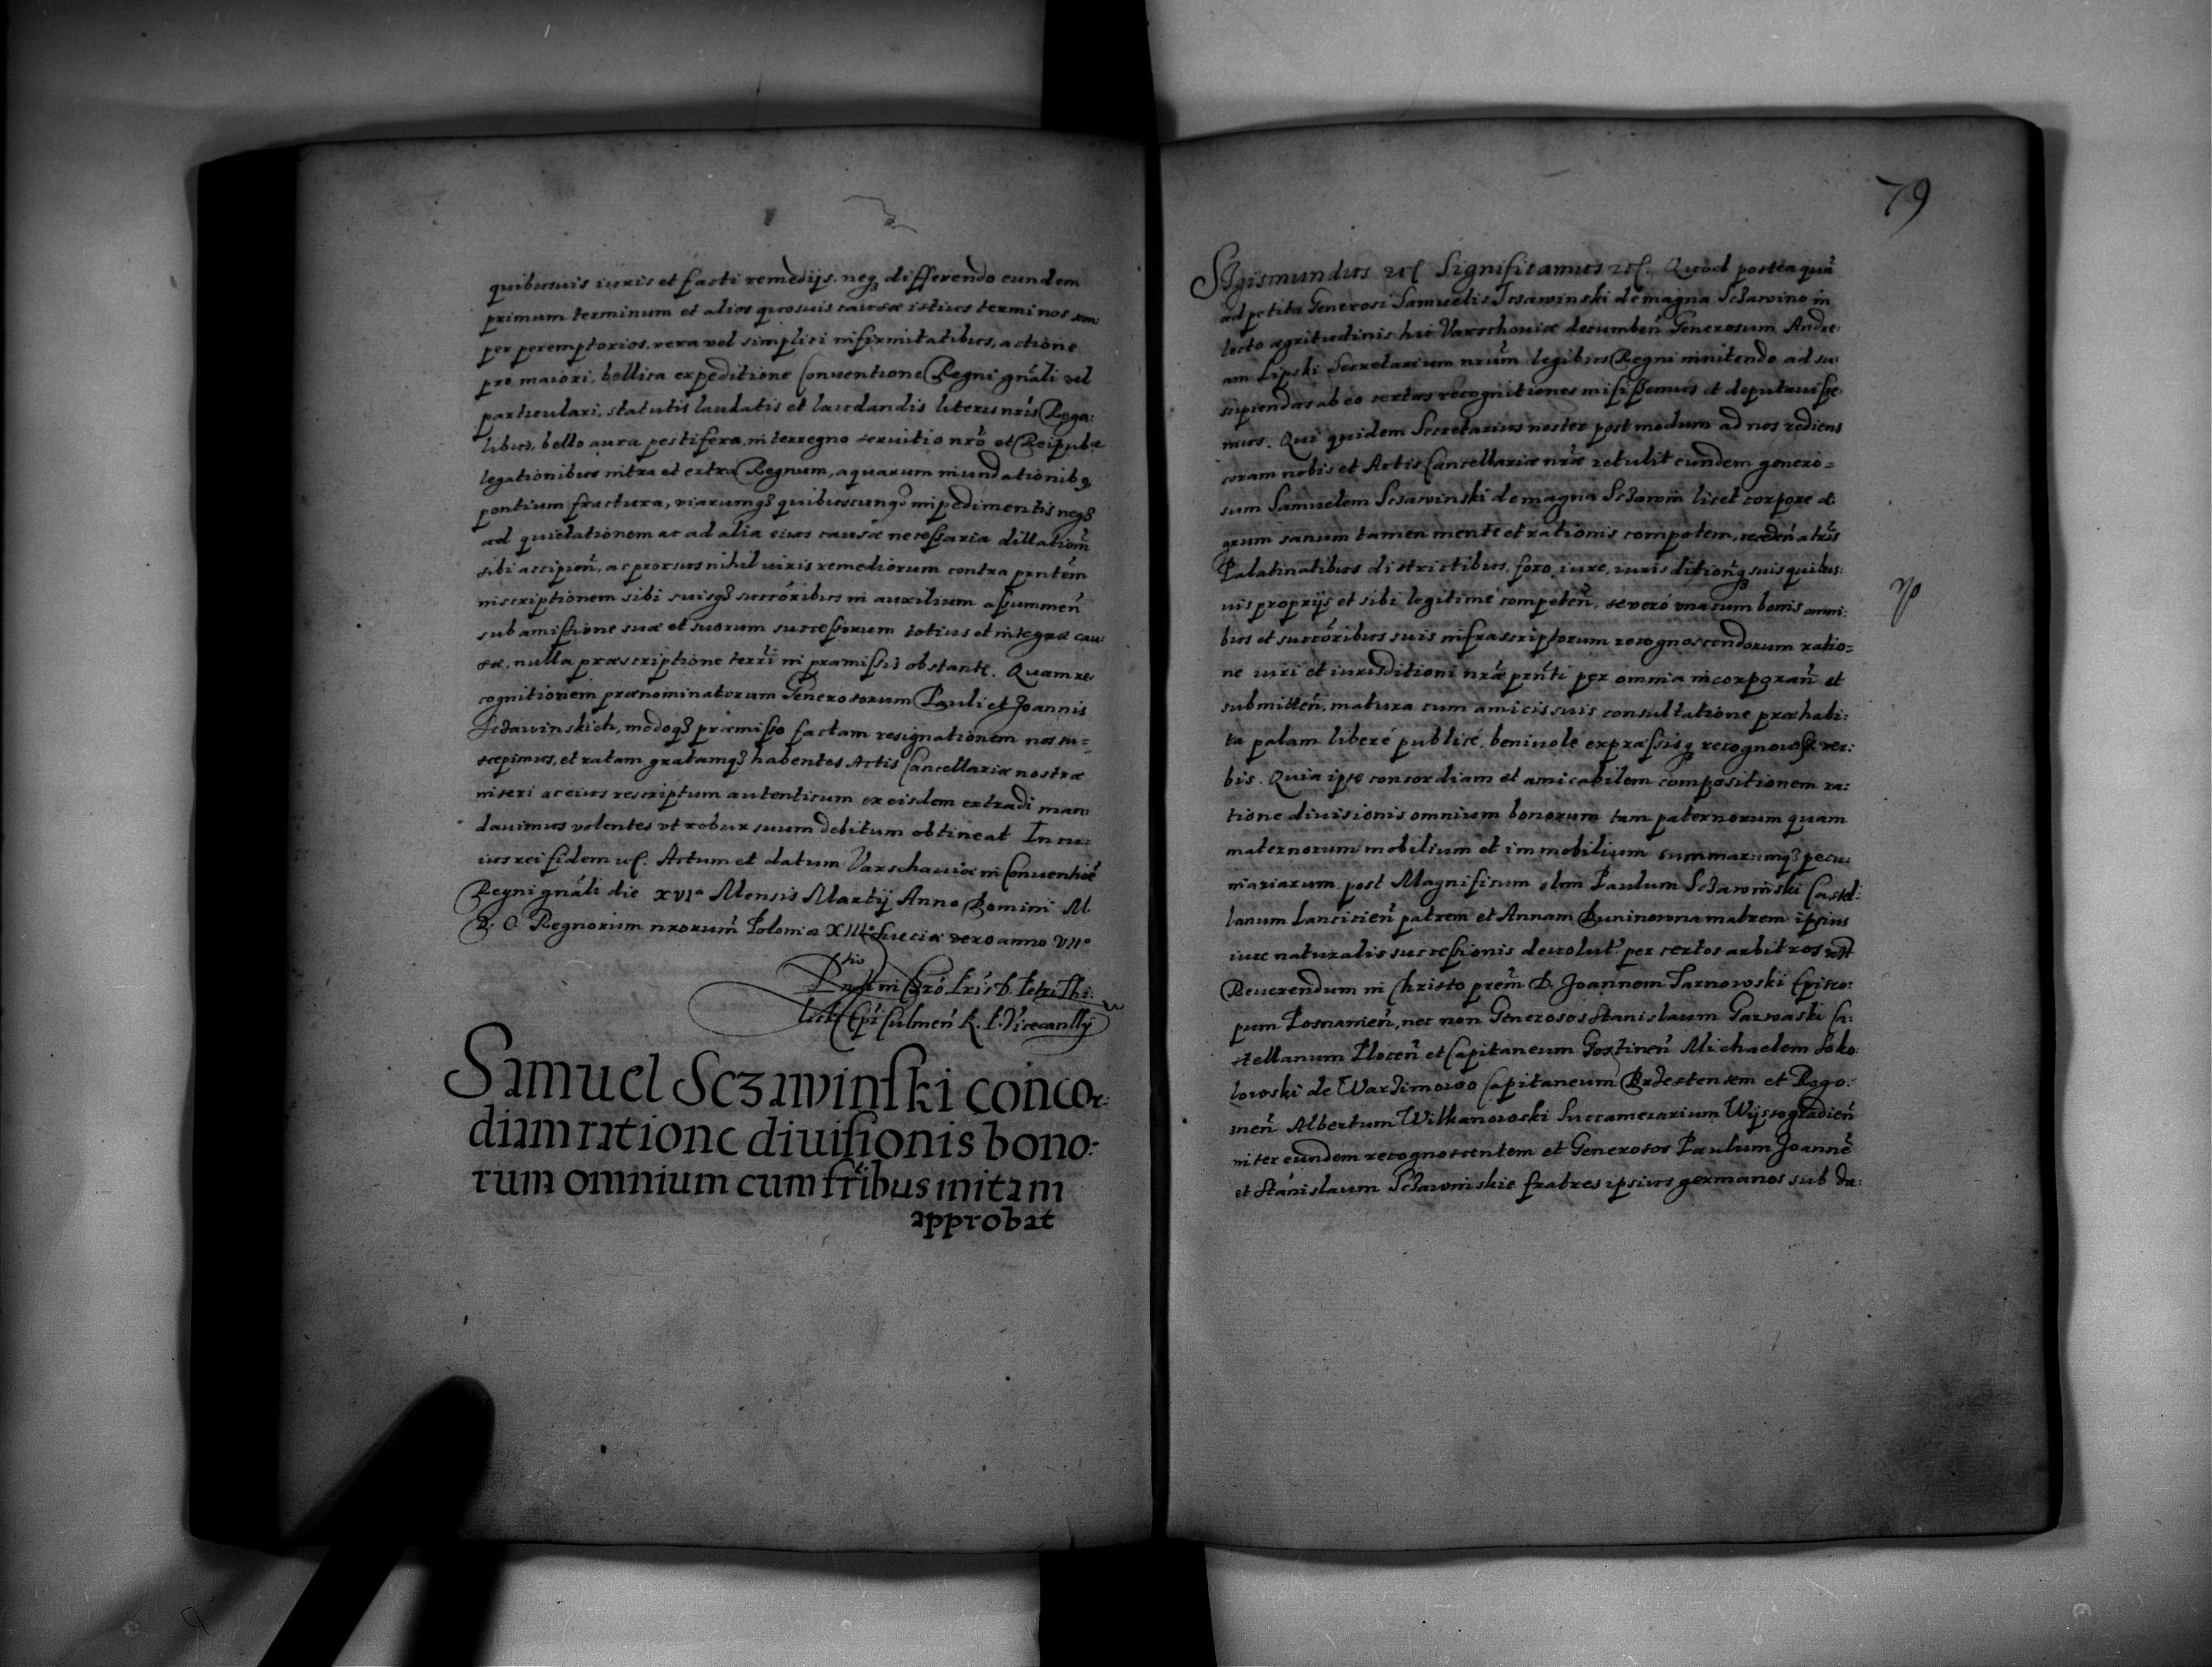 quibusuis iuris et facti remedijs. neq3 differendo eundem
primum terminum et alios quosuis causæ istius terminos sem:
per peremptorios, vera vel simplici infirmitatibus, actione
pro maiori, bellica expeditione Conuentione Regni gnãli vel
particulari, statutis laudatis et laudandis literis nrĩs Rega:
libus, bello aura pestifera, interregno seruitio nrõ et Reipub:
legationibus intra et extra Regnum, aquarum inundationibq3
pontium fractura, viarumq3 quibuscunq3 impedimentis neq3
ad quietationem ac ad alia eius causæ necessaria dillationẽ
sibi accipien̄, ac prorsus nihil iuris remediorum contra prntẽm
inscriptionem sibi suisq3 succõribus in auxilium assummen̄
sub amissione suæ et suorum successorum totius et integræ cau:
sæ, nulla præscriptione terrĩ in præmissis obstante. Quam re:
cognitionem prænominatorum Generosorum Pauli et Joannis
Sczawinskich, modoq3 præmisso factam resignationem nos su=
scepimus, et ratam gratamq3 habentes Actis Cancellariæ nostræ
inseri ac eius rescriptum autenticum ex eisdem extradi man:
dauimus volentes vt robur suum debitum obtineat In cu:
ius rei fidem etc. Actum et datum Varschauiæ in Conuentiõe
Regni gnãli die XVIa Mensis Martij Anno Domini M.
D. C Regnorum nrorum̄ Poloniæ XIIIo Sueciæ vero anno VIIo
samuel Sczawinski concor:
diam ratione diuisionis bono:
rum omnium cum frĩbus initam
approbat
79
SIgismundus etc Significamus etc. Quod posteaquã
ad petita Generosi Samuelis Sczawinski de magna Sczawino in
lecto ægritudinis hic Varschouiæ decumben̄ Generosum Andre:
am Lipski Secretarium nrũm legibus Regni innitendo ad su:
scipiendas ab eo certas recognitiones misissemus et deputauisse:
mus. Qui quidem Secretarius noster post modum ad nos rediens
coram nobis et Actis Cancellariæ nrã retulit eundem genero=
sum Samuelem Sczawinski de magna Sczawin licet corpore æ:
grum sanum tamen mente et rationis compotem, receden̄ a trĩs
Palatinatibus districtibus, foro, iure, iurisditionq3 suis quibus:
uis proprijs et sibi legitimè competen̄, se verò vna cum bonis omni:
bus et succõribus suis infrascriptorum recognoscendorum ratio=
ne iuri et iurisditioni nrã prñti per omnia incorporan̄ et
submitten̄, matura cum amicis suis consultatione præhabi:
ta palam liberè publicè, beniuolè expressisq3 recognouisse ver:
bis. Quia ipse concordiam et amicabilem compositionem ra:
tione diuisionis omnium bonorum tam paternorum quam
maternorum mobilium et immobilium summarumq3 pecu:
niariarum post Magnificum olim Paulum Sczawinski Castel:
lanum Lancicien̄ patrem et Annam Duninowna matrem ipsius
iure naturalis successionis deuolut: per certos arbitros
Reuerendum in Christo prẽm D. Joannem Tarnowski Episco:
pum Posnanien̄, nec non Generosos Stanislaum Garwaski Ca:
stellanum Plocen̄ et Capitaneum Gostinen̄ Michaelem Soko
lowski de Warzimowo Capitaneum Brzestensem et Rogo:
znen̄ Albertum Wilkanowski Succamerarium Wyssogradien̄
inter eundem recognoscentem et Generosos Paulum Joannẽ
et Stanislaum Sczawinskie fratres ipsius germanos sub da: